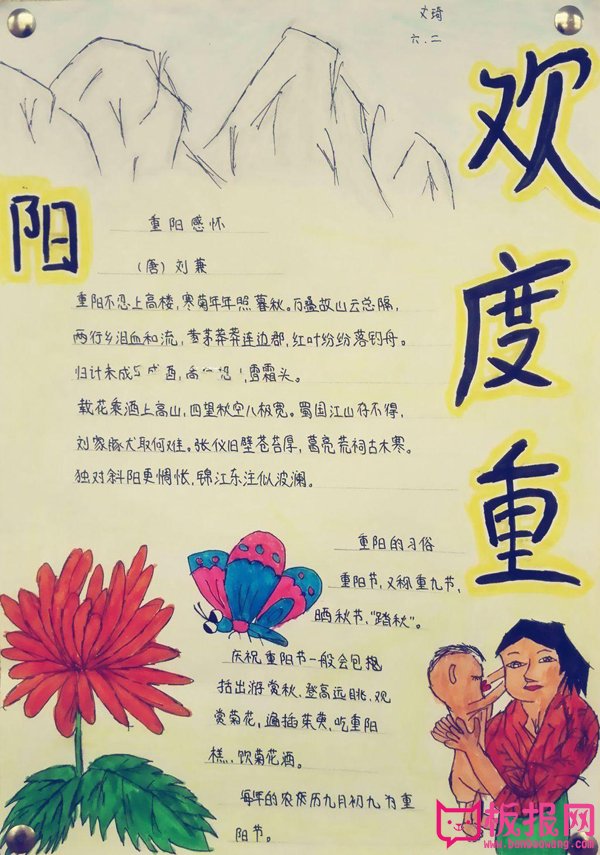 文琦
六.二
欢度重阳
重阳感怀
(唐)刘兼
重阳不忍上高楼,寒菊年年照暮秋。万叠故山云总隔,
两行乡泪血和流,黄茅莽莽连边郡,红叶纷纷落钓舟。
归计未成 雪霜头。
载花乘酒上高山,四望秋空八极宽。蜀国江山存不得,
刘家豚犬取何难。张仪旧壁苍苔厚,葛亮荒祠古木寒。
独对斜阳更惆怅,锦江东注似波澜。
重阳的习俗
重阳节,又称重九节,
晒秋节、“踏秋”。
庆祝重阳节一般会包抱
括出游赏秋、登高远眺、观
赏菊花、遍插茱萸、吃重阳
糕、饮菊花酒。
每年的农历九月初九为重
阳节。
板报网
www.banbaowang.com